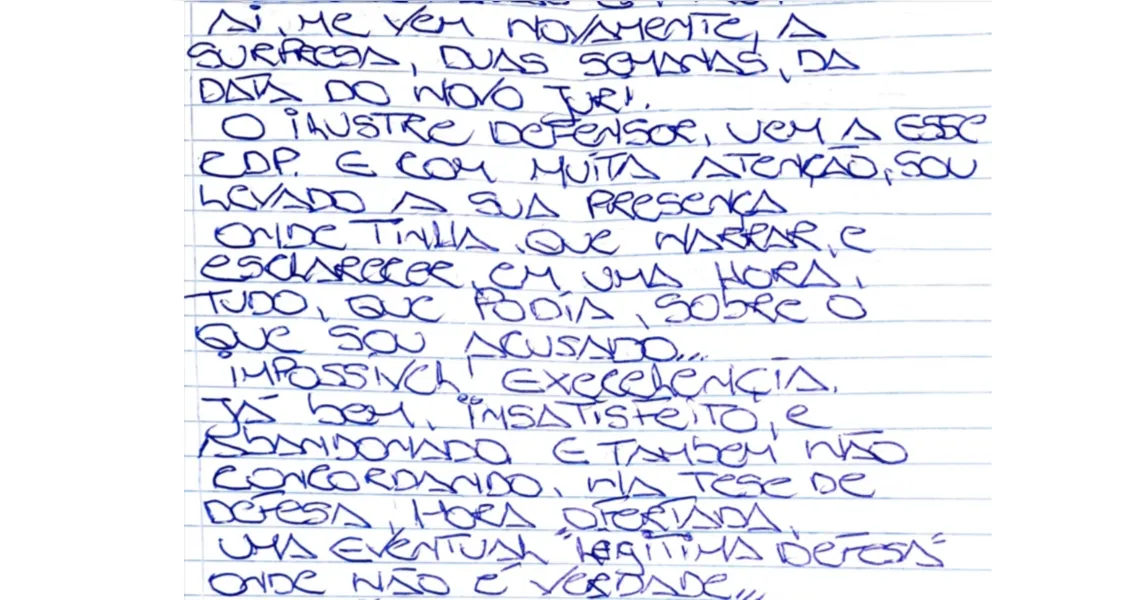 Ai, ME VEM NOVAMENTE, A
SURPRESA, DUAS SEMANAS, DA
DATA DO NOVO JURI.
O ILUSTRE DEFENSOR, VEM A ESSE
CDP. E COM MUITA ATENÇÃO, SOU
LEVADO A SUA PRESENÇA
ONDE TINHA, QUE NARRAR, E
ESCLARECER, EM UMA HORA,
TUDO, QUE PODIA, SOBRE O
QUE SOU ACUSADO...
IMPOSSÍVEL! EXCELENÇIA.
JÁ BEM, INSATISFEITO, E
ABANDONADO E TAMBEM NÃO
CONCORDANDO, NA TESE DE
DEFESA, HORA OFERTADA,
UMA EVENTUAL "LEGITIMA DEFESA"
ONDE NÃO É VERDADE...